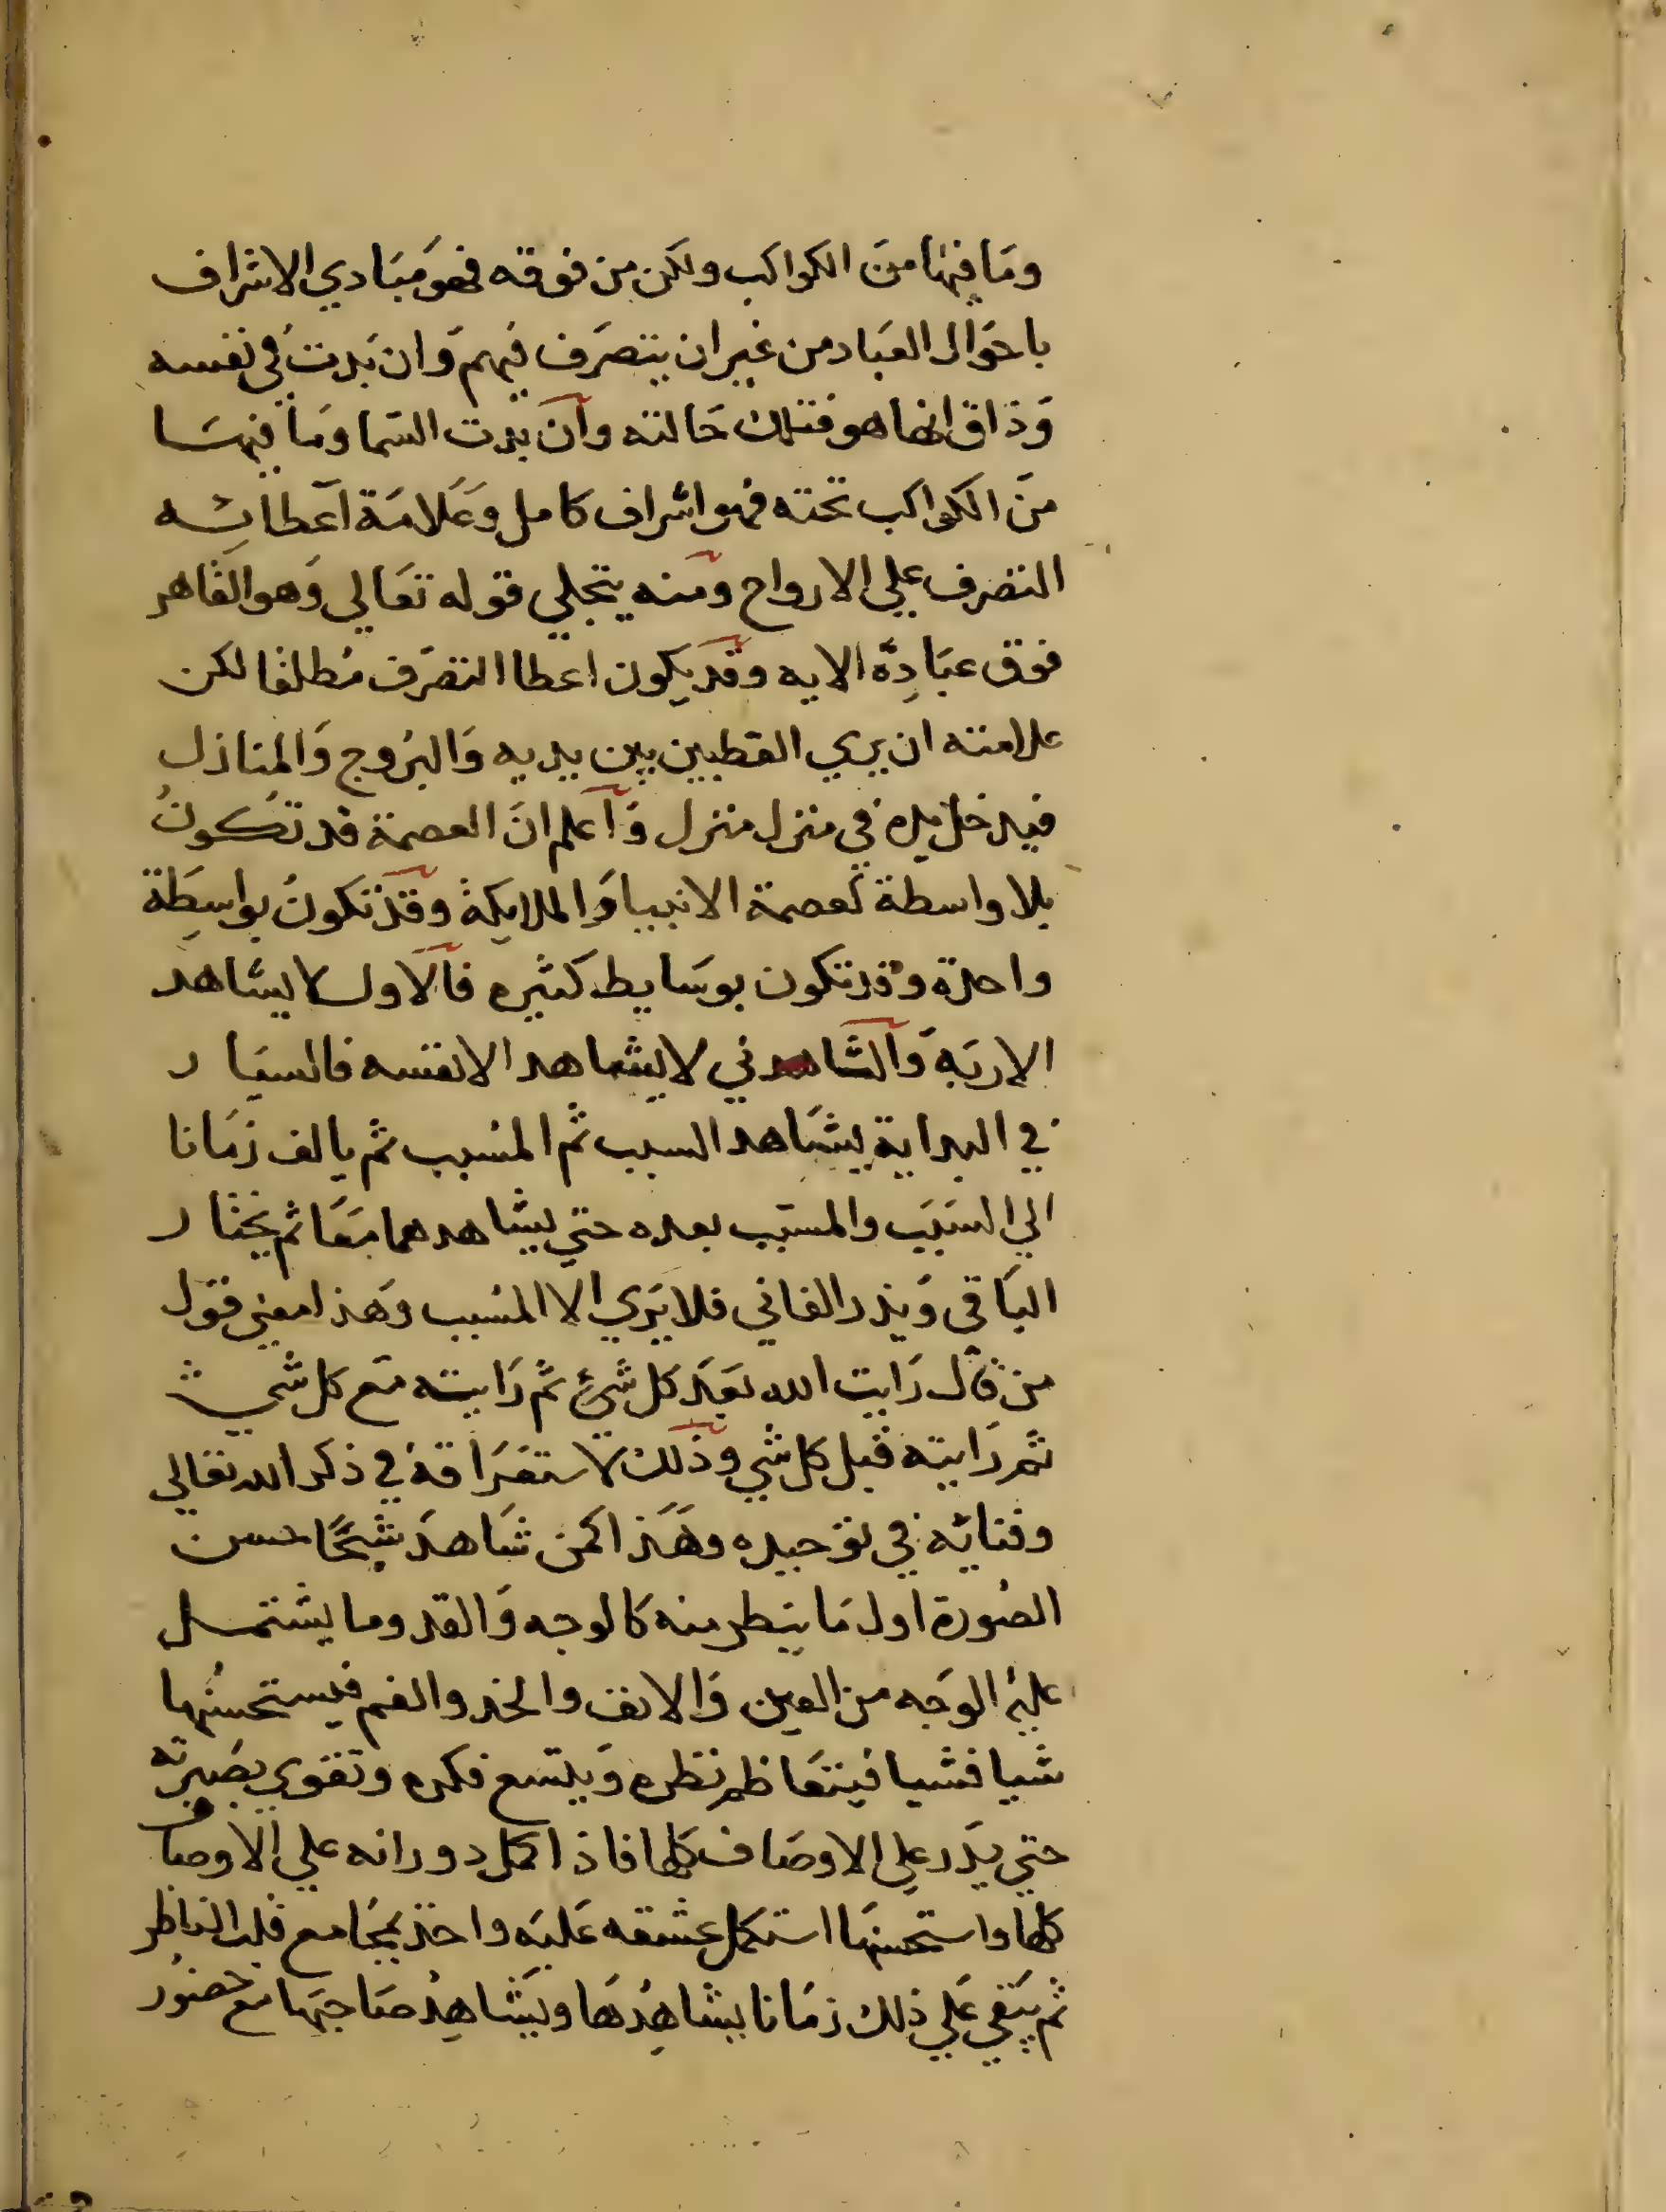 ومَا فيهَا منَ الكواكب ولكن من فوقه فهوَ مبَادي الاشراف
باحوَال العبَاد من غير ان يتصرَف فيهم وَان بَدتْ في نفسه
وَذاق انها هو فتلك حَالته وان بدت السَما ومَا فيهسَا
منَ الكواكب تحته فهو اشراف كامل وعَلامَة اعطائِه
التصرف علي الارواح ومنه يتجلي قوله تعَالي وَهو القَاهر
فوق عبَادِه الايه وقد يكون اعطا التصرَف مُطلقا لكن
علامته ان يري القطبين بين يديه وَالبرُوج وَالمنازل
فيدخل يده في منزل منزل وَاعلم انَ العصمة قد تكونُ
بلا واسطة كعصمة الانبيا وَالملايكة وقدْ تكونُ بواسِطَة
واحدة وقد تكون بوسَايط كثيره فالاول لا يشاهد
الا ربَهَ وَالثاني لا يشاهد الا نفسه فالسيَار
في البداية يشَاهد السبب ثم المسَبب ثم يالف زمَانا
الي السَبَبَ والمسَبب بعده حتي يشاهدهما معَا ثم يختار
البَاقي وَيذر الفاني فلا يَري الا المسَبب وهَذا معني قوَل
من قال رَايت الله بعَدَ كل شَيْ ثم رَايته مَع كل شَي
ثم رَايته قبل كل شي وذلك لاستغرَاقة في ذكر الله تعالي
وفنايه في توحيده وهَذا كمن شَاهدَ شيخًا حسن
الصُورة اول مَا ينظر منه كالوجه وَالقد وما يشتمل
عليهُ الوجَه من العين وَالانف والخد والفم فيستحسنُها
شيا فشيا فيتعَاظم نظره وَيتسع فكره وتقوي بصَيرته
حتي يدَر علي الاوصَاف كلها فاذا كمل دورانه علي الاوصاف
كلها واستحسنهَا استكمل عشقه عَليَه واخذ بمجَامع قلب الناظر
ثم يبَقي عَلي ذلك زمَانا يشاهِدُهَا ويشَاهِدُ صَاحبَها معَ حضوُر